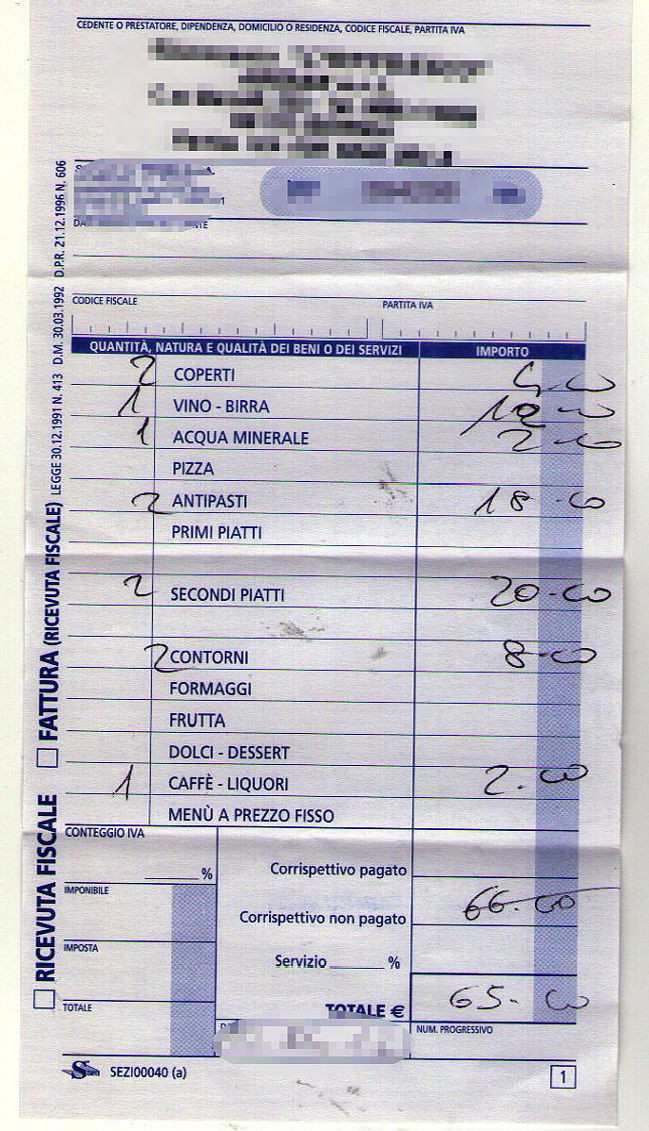 CEDENTE O PRESTATORE, DIPENDENZA, DOMICILIO O RESIDENZA, CODICE FISCALE, PARTITA IVA
CODICE FISCALE PARTITA IVA
QUANTITÀ, NATURA E QUALITÀ DEI BENI O DEI SERVIZI IMPORTO
2 COPERTI
1 VINO - BIRRA 10-00
1 ACQUA MINERALE 2-00
PIZZA
2 ANTIPASTI 18-00
PRIMI PIATTI
2 SECONDI PIATTI 20-00
2 CONTORNI 8-00
FORMAGGI
FRUTTA
DOLCI - DESSERT
1 CAFFÈ - LIQUORI 2.00
MENÙ A PREZZO FISSO
CONTEGGIO IVA
% Corrispettivo pagato
IMPONIBILE
Corrispettivo non pagato 66-00
IMPOSTA
Servizio ______ %
TOTALE
TOTALE € 65-00
NUM. PROGRESSIVO
SEZI00040 (a) 1
RICEVUTA FISCALE
FATTURA (RICEVUTA FISCALE) LEGGE 30.12.1991 N. 413 D.M. 30.03.1992 D.P.R. 21.12.1996 N. 606